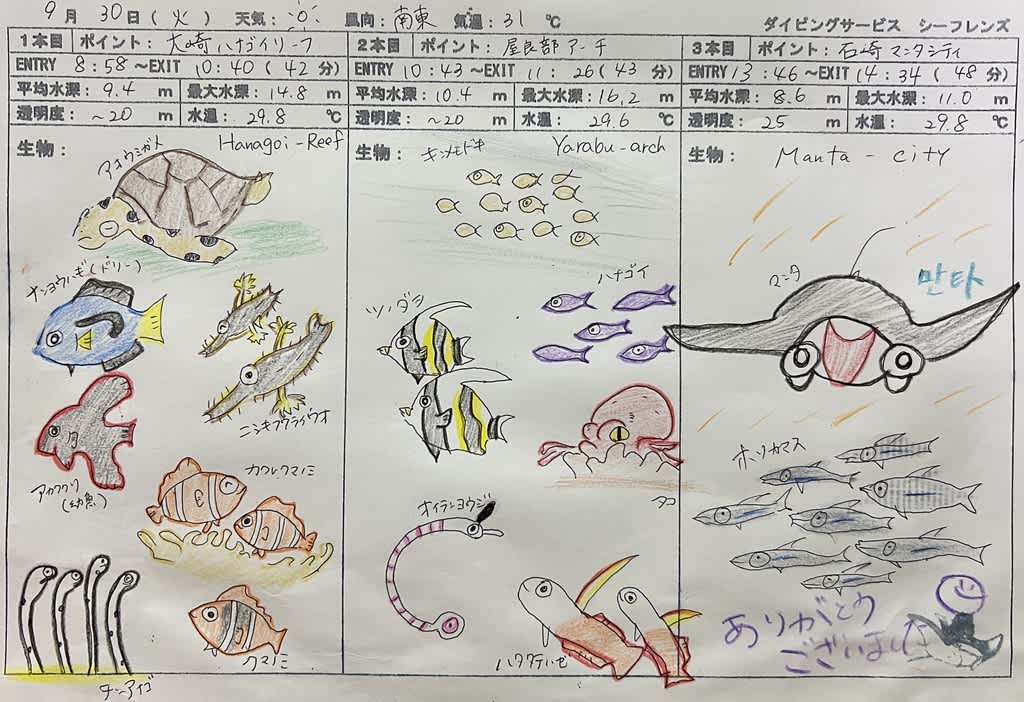 9月 30日(火) 天気: 風向: 南東 気温: 31 ℃
ダイビングサービス シーフレンズ
1本目 ポイント: 大崎ハナゴイリーフ
ENTRY 8:58 ~EXIT 10:40 (42分)
平均水深: 9.4 m 最大水深: 14.8 m
透明度: ~20 m 水温: 29.8 ℃
生物:
Hanagoi-Reef
アオウミガメ
ナンヨウハギ(ドリー)
ニシキフウライウオ
アカククリ
(幼魚)
カクレクマノミ
クマノミ
チンアナゴ
2本目 ポイント: 屋良部アーチ
ENTRY 10:43 ~EXIT 11:26 (43分)
平均水深: 10.4 m 最大水深: 16.2 m
透明度: ~20 m 水温: 29.6 ℃
生物: キンメモドキ
Yarabu-arch
ハナゴイ
ツノダシ
タコ
オイランヨウジ
ハタタテハゼ
3本目 ポイント: 石崎マンタシティ
ENTRY 13:46 ~EXIT 14:34 (48分)
平均水深: 8.6 m 最大水深: 11.0 m
透明度: 25 m 水温: 29.8 ℃
生物: Manta-city
マンタ
만타
ホソカマス
ありがとう
ございました